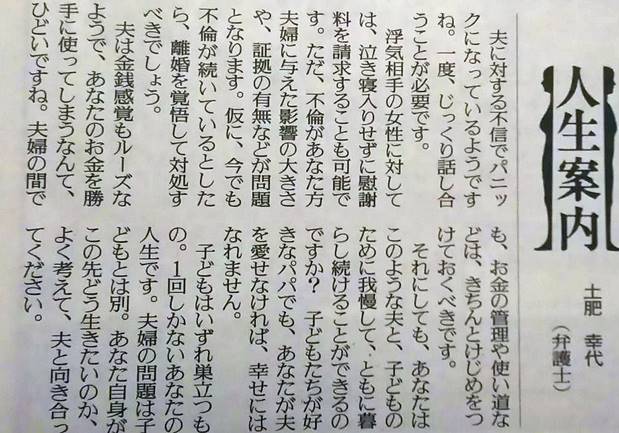 人生案内
土肥 幸代
(弁護士)
夫に対する不信でパニッ
クになっているようです
ね。一度、じっくり話し合
うことが必要です。
浮気相手の女性に対して
は、泣き寝入りせずに慰謝
料を請求することも可能で
す。ただ、不倫があなた方
夫婦に与えた影響の大きさ
や、証拠の有無などが問題
となります。仮に、今でも
不倫が続いているとした
ら、離婚を覚悟して対処す
べきでしょう。
夫は金銭感覚もルーズな
ようで、あなたのお金を勝
手に使ってしまうなんて、
ひどいですね。夫婦の間で
も、お金の管理や使い道な
どは、きちんとけじめをつ
けておくべきです。
それにしても、あなたは
このような夫と、子どもの
ために我慢して、ともに暮
らし続けることができるの
ですか? 子どもたちが好
きなパパでも、あなたが夫
を愛せなければ、幸せには
なれません。
子どもはいずれ巣立つも
の。1回しかないあなたの
人生です。夫婦の問題は子
どもとは別。あなた自身が
この先どう生きたいのか、
よく考えて、夫と向き合っ
てください。